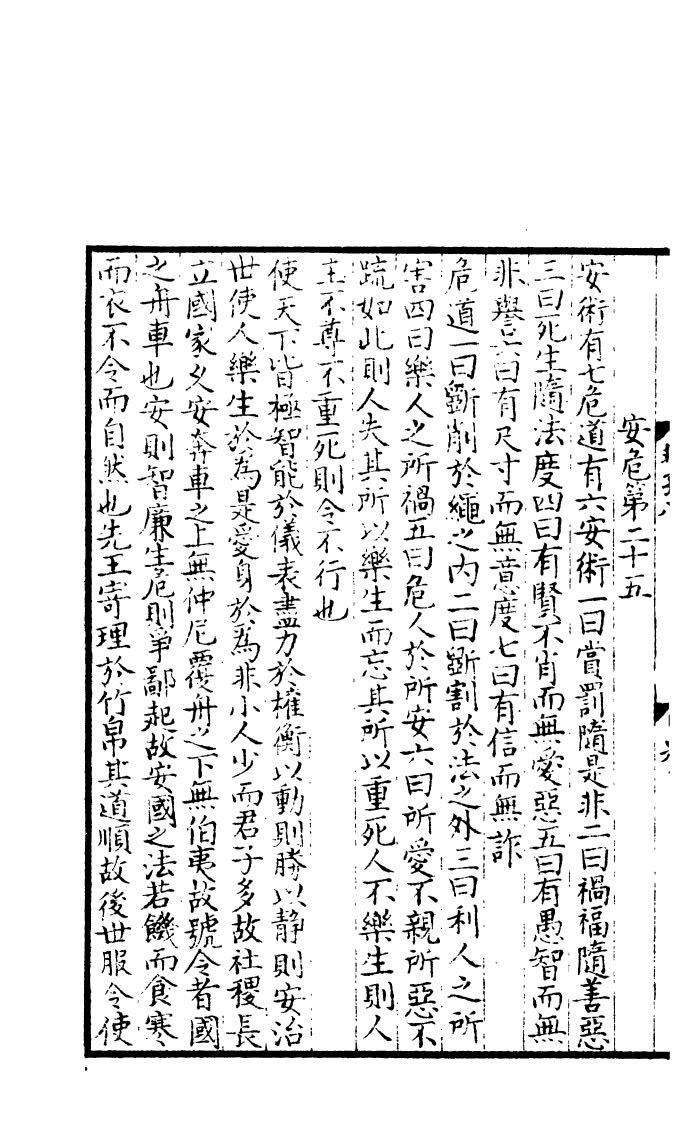 安危第二十五
安術有七危道有六安術一曰賞罰隨是非二曰禍福隨善惡
三曰死生隨法度四曰有賢不肖而無愛惡五曰有愚智而無
非譽六曰有尺寸而無意度七曰有信而無詐
危道一曰斷削於繩之內二曰斷割於法之外三曰利人之所
害四曰樂人之所禍五曰危人於所安六曰所愛不親所惡不
疏如此則人失其所以樂生而忘其所以重死人不樂生則人
主不尊不重死則令不行也
使天下皆極智能於儀表盡力於權衡以動則勝以静則安治
世使人樂生於為是愛身於為非小人少而君子多故社稷長
立國家乆安奔車之上無仲尼覆舟之下無伯夷故號令者國
之舟車也安則智廉生危則爭鄙起故安國之法若饑而食寒
而衣不令而自然也先王寄理於竹帛其道順故後世服令使